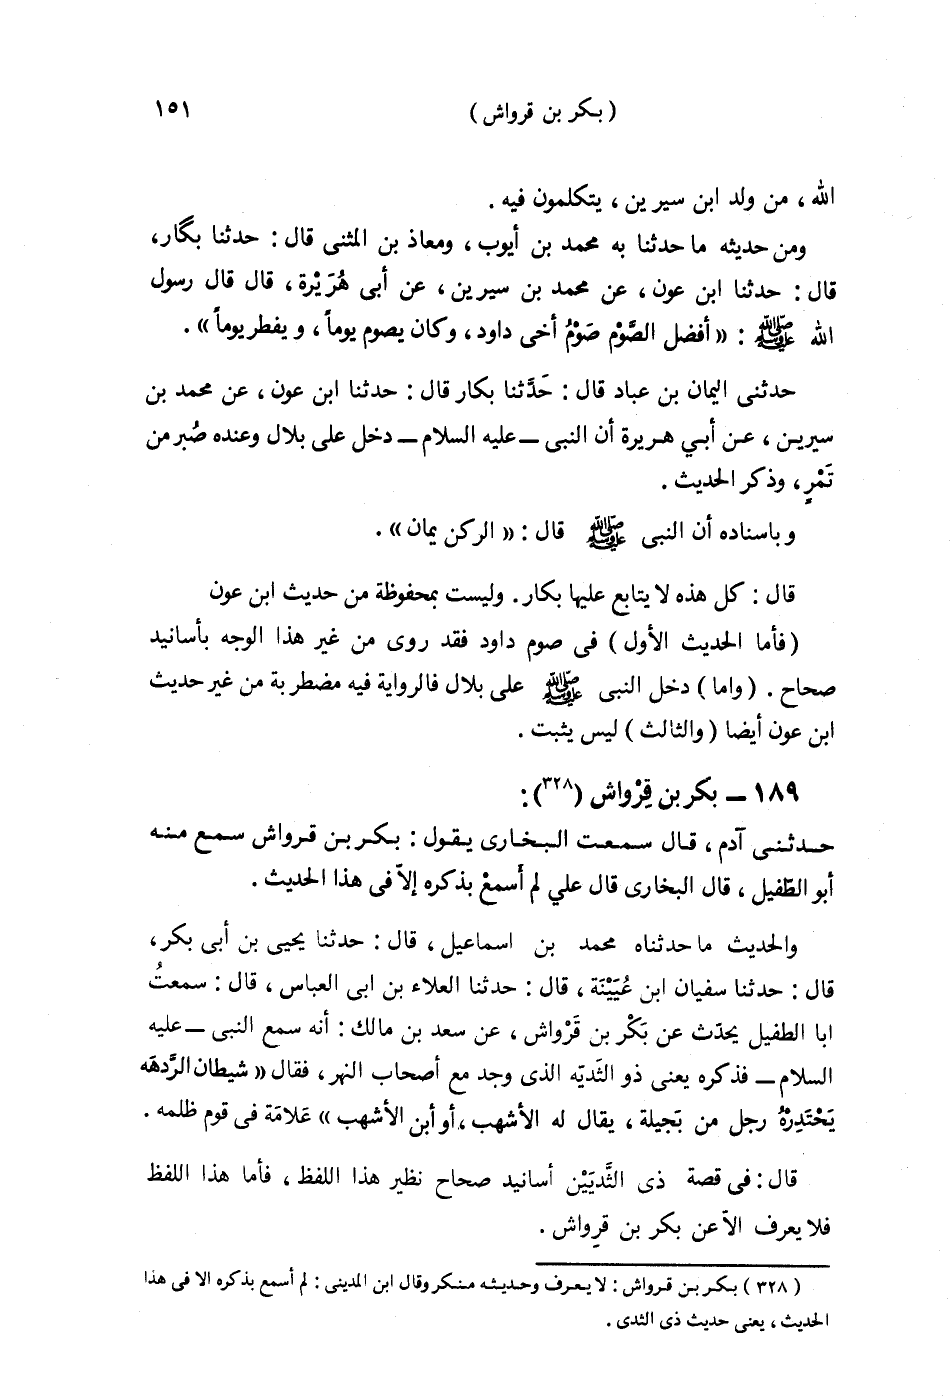 ( بكر بن قرواش )
١٥١
الله ، من ولد ابن سيرين ، يتكلمون فيه .
ومن حديثه ما حدثنا به محمد بن أيوب ، ومعاذ بن المثنى قال : حدثنا بگار ،
قال : حدثنا ابن عون ، عن محمد بن سيرين ، عن أبى هُرَيْرة ، قال قال رسول
الله ﷺ : « أفضل الصَّوْم صَوْمُ أخى داود ، وكان يصوم يوماً ، و يفطر يوماً » .
حدثنى اليمان بن عباد قال : حَدَّثنا بكار قال : حدثنا ابن عون ، عن محمد بن
سيرين ، عن أبي هريرة أن النبى ــ عليه السلام ــ دخل على بلال وعنده صُبر من
تَمْرٍ ، وذكر الحديث .
و باسناده أن النبى ﷺ قال : « الركن يمان » .
قال : كل هذه لا يتابع عليها بكار . وليست بمحفوظة من حديث ابن عون
( فأما الحديث الأول ) فى صوم داود فقد روى من غير هذا الوجه بأسانيد
صحاح . ( واما ) دخل النبى ﷺ على بلال فالرواية فيه مضطر بة من غير حديث
ابن عون أيضا ( والثالث ) ليس يثبت .
١٨٩ ــ بكر بن قِرْواش (٣٢٨) :
حدثنى آدم ، قال سمعت البخارى يقول : بكر بن قرواش سمع منه
أبو الطّفيل ، قال البخارى قال علي لم أَسمعْ بذكره إلاّ فى هذا الحديث .
والحديث ما حدثناه محمد بن اسماعيل ، قال : حدثنا يحيى بن أبى بكر ،
قال : حدثنا سفيان ابن عُيَيْنَة ، قال : حدثنا العلاء بن ابى العباس ، قال : سمعتُ
ابا الطفيل يحدّث عن بَكْر بن قَرْواش ، عن سعد بن مالك : أنه سمع النبى ــ عليه
السلام ــ فذكره يعنى ذو الثَديّه الذى وجد مع أصحاب النهر ، فقال « شيطان الرَّدهَه
يَحْتَدِرْهُ رجل من بَجيلة ، يقال له الأشهب ، أو أبن الأشهب » عَلامَة فى قوم ظلمه .
قال : فى قصة ذى الثَّديَيْن أسانيد صحاح نظير هذا اللفظ ، فأما هذا اللفظ
فلا يعرف الاّ عن بكر بن قِرواش .
( ٣٢٨ ) بكر بن قرواش : لا يعرف وحديثه منكر وقال ابن المدينى : لم أسمع بذكره الا فى هذا
الحديث ، يعنى حديث ذى الثدى .